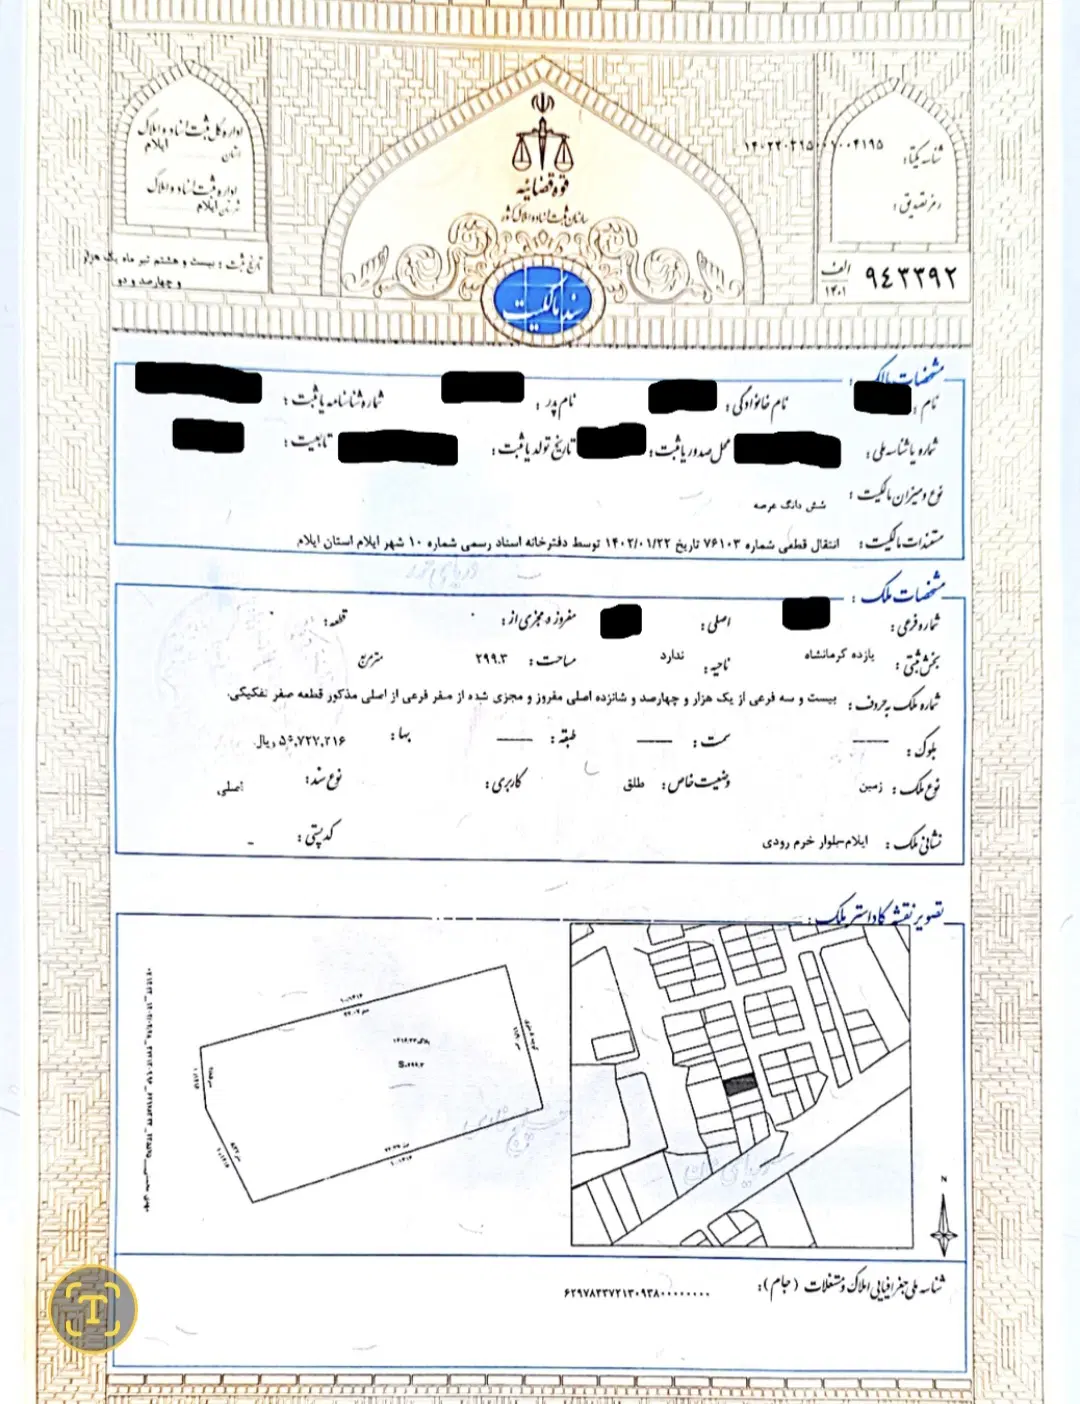 اداره کل ثبت اسناد و املاک
استان ایلام
اداره ثبت اسناد و املاک
شهرستان ایلام
تاریخ ثبت : بیست و هشتم تیر ماه یک هزار
و چهارصد و دو
قوه قضائیه
سازمان ثبت اسناد و املاک کشور
سند مالکیت
شناسه یکتا:
رمز تصدیق :
الف
۱۴۰۱
۹۴۳۳۹۲
مشخصات مالک :
نام : نام خانوادگی : نام پدر : شماره شناسنامه یا ثبت :
شماره یا شناسه ملی : محل صدور یا ثبت : تاریخ تولد یا ثبت : تابعیت :
نوع و میزان مالکیت : شش دانگ عرصه
مستندات مالکیت : انتقال قطعی شماره ۷۶۱۰۳ تاریخ ۱۴۰۲/۰۱/۲۲ توسط دفترخانه اسناد رسمی شماره ۱۰ شهر ایلام استان ایلام
مشخصات ملک :
شماره فرعی : اصلی : مفروز و مجزی از : ۰ قطعه : ۰
بخش ثبتی : یازده کرمانشاه ناحیه : ندارد مساحت : ۲۹۹.۳ مترمربع
شماره ملک به حروف : بیست و سه فرعی از یک هزار و چهارصد و شانزده اصلی مفروز و مجزی شده از صفر فرعی از اصلی مذکور قطعه صفر تفکیکی.
بلوک : —— سمت : —— طبقه : —— بها : ۵۰,۷۲۷,۲۱۶ ریال
نوع ملک : زمین وضعیت خاص : طلق کاربری : نوع سند : اصلی
نشانی ملک : ایلام-بلوار خرم رودی کدپستی : _
تصویر نقشه کاداستر ملک :
N
شناسه ملی جغرافیایی املاک و مستغلات (جام) :